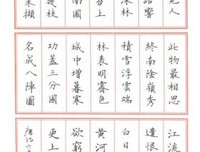 語響
深林
苔上
南國
采擷
此物最相思
終南陰嶺秀
積雪浮雲端
林表明霽色
城中增暮寒
功蓋三分國
名成八陣圖
江流
遺恨
白日
黃河
欲窮
更上